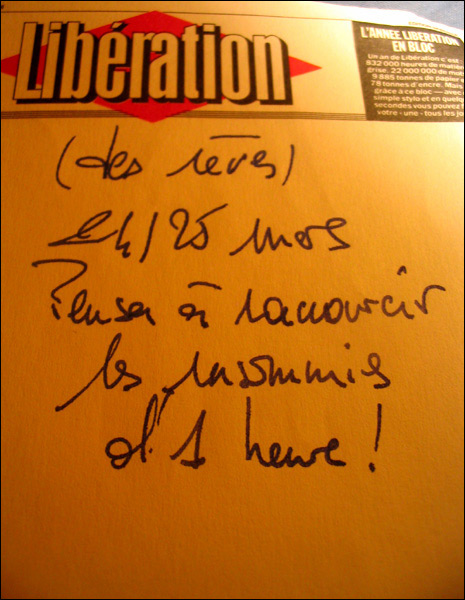 Libération
L'ANNÉE LIBÉRATION
EN BLOC
Un an de Libération c'est
832 000 heures de matière
grise, 22 000 000 de mots
9 885 tonnes de papier
78 tonnes d'encre. Mais
grâce à ce bloc — avec
simple stylo et en quelq
secondes vous pouvez f
votre «une» tous les jo
(des rêves)
24/25 mars
Penser à raccourcir
les insomnies
d'1 heure !